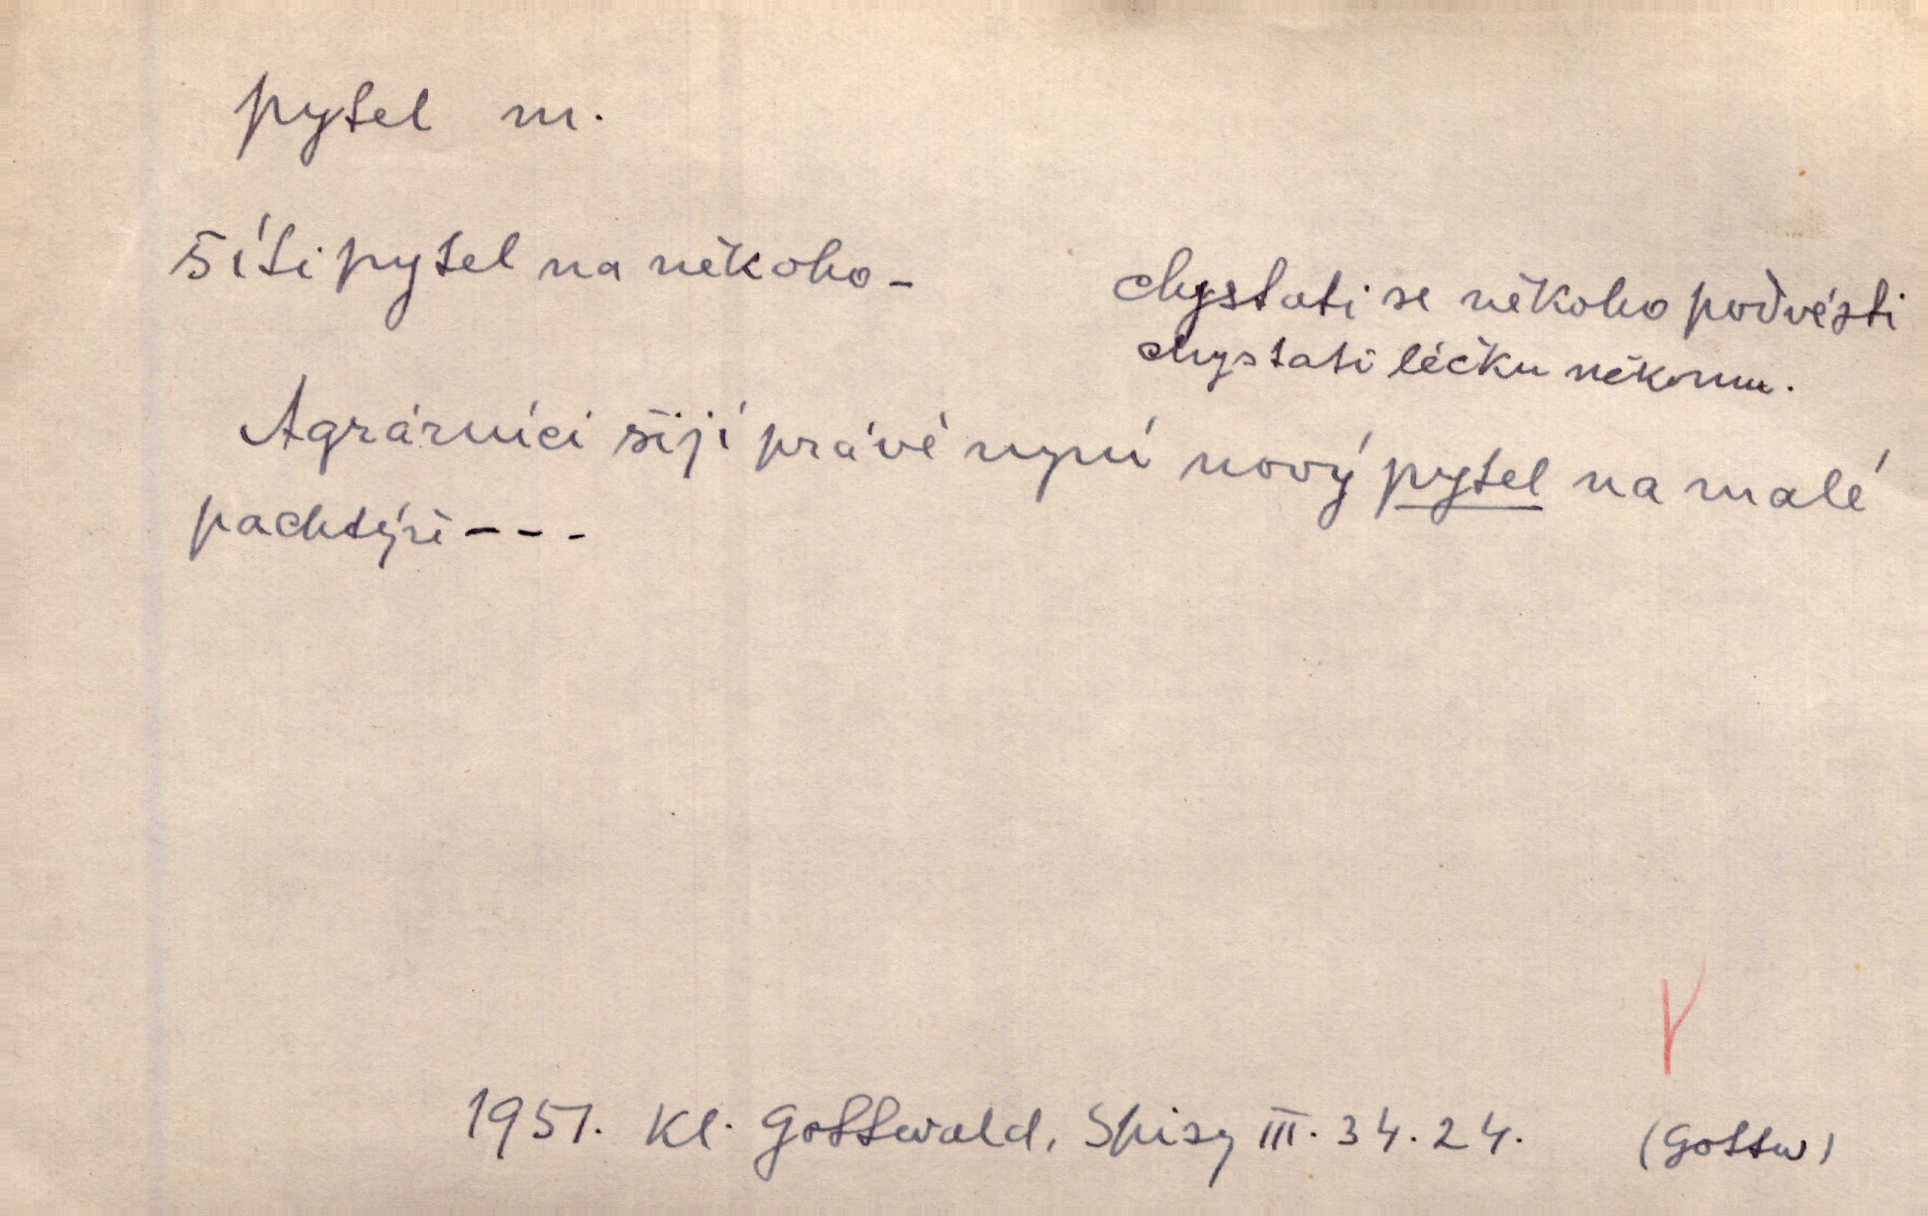 pytel m.
šíti pytel na někoho -
chystati se někoho podvésti
chystati léčku někomu.
Agrárníci šijí právě nyní nový pytel na malé
pachtýře - - -
1951. Kl. Gottwald, Spisy III. 34. 24.
(Gottw)